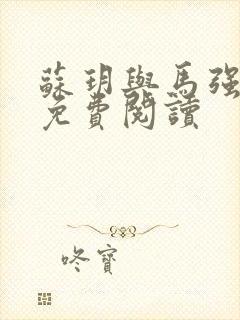 蘇玥與馬强
免費閱讀
咚寶